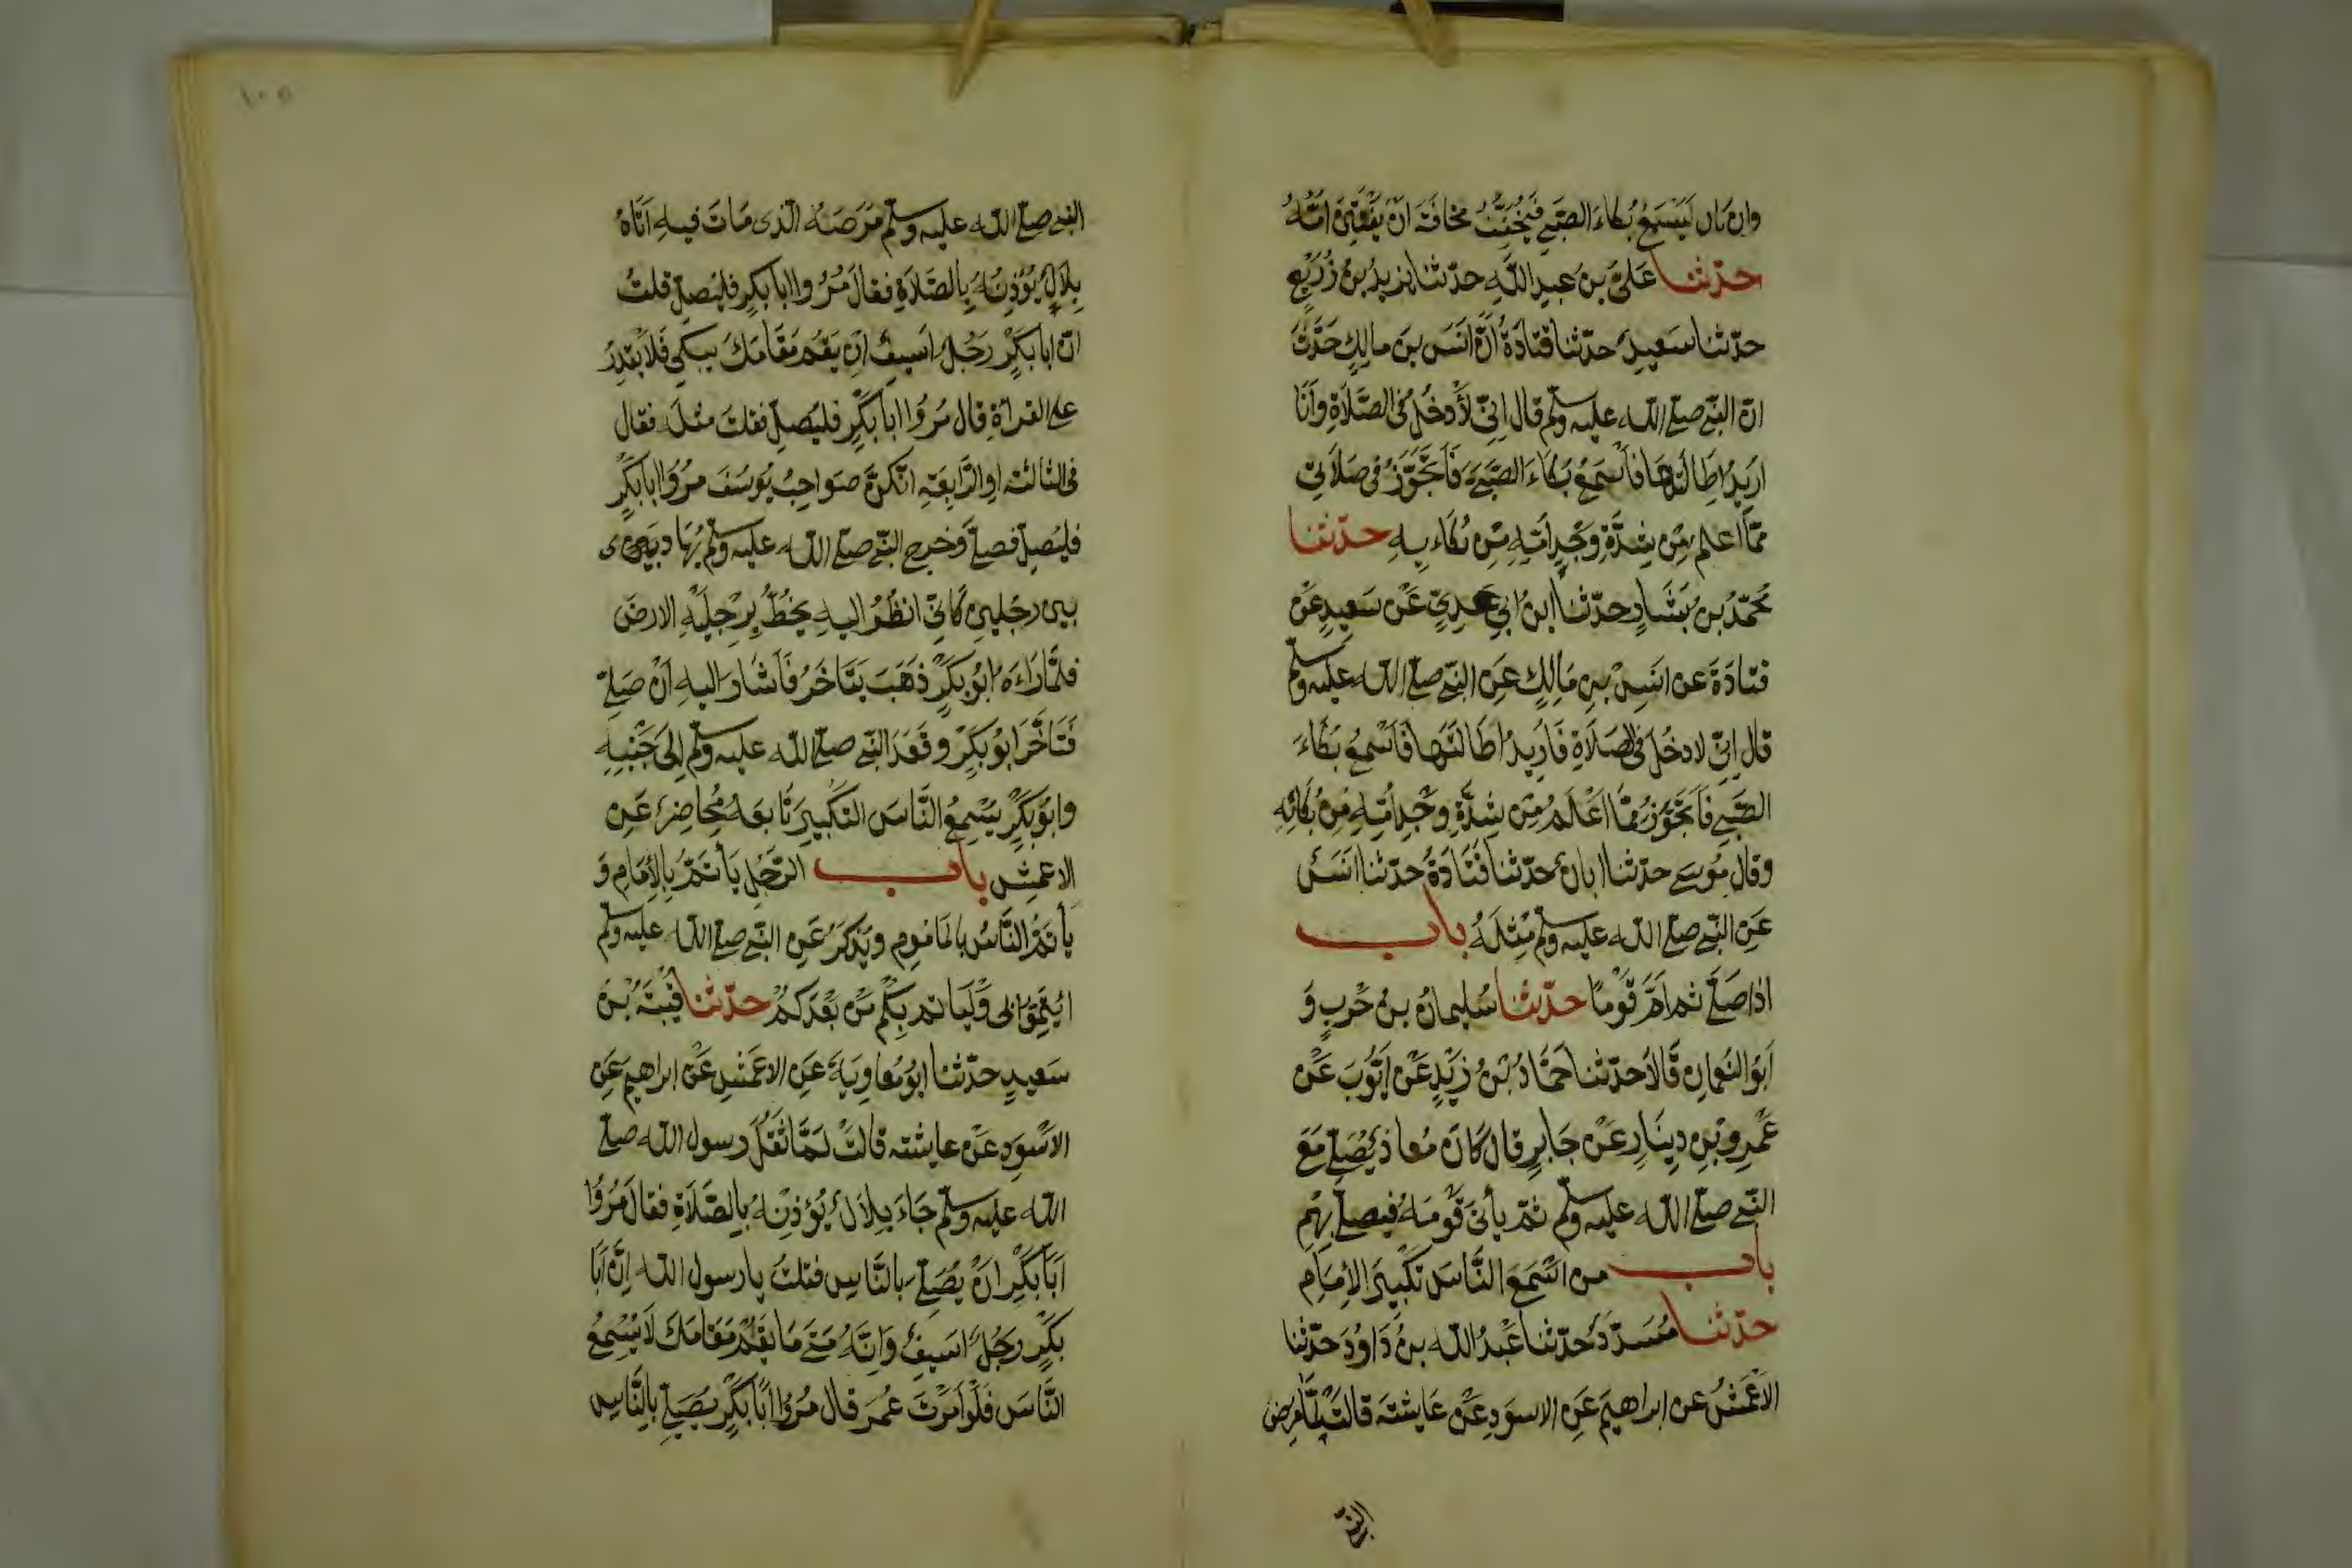 وان كان ليسمع بكاء الصبي فيخفف مخافة ان يفتتن امه
حدثنا علي بن عبد الله حدثنا يزيد بن زريع
حدثنا سعيد حدثنا قتادة ان انس بن مالك حدث
ان النبي صلى الله عليه وسلم قال اني لأدخل في الصلاة وانا
اريد اطالتها فأسمع بكاء الصبي فأتجوز في صلاتي
مما اعلم من شدة وجد امه من بكاءيه حدثنا
محمد بن بشار حدثنا ابن ابي عدي عن سعيد عن
قتادة عن انس بن مالك عن النبي صلى الله عليه وسلم
قال اني لادخل في الصلاة فاريد اطالتها فاسمع بكاء
الصبي فأتجوز مما اعلم من شدة وجد امه من بكائه
وقال موسى حدثنا ابان حدثنا قتادة حدثنا انس
عن النبي صلى الله عليه وسلم مثله باب
اذا صلى ثم ام قوما حدثنا سليمان بن حرب و
ابو النعمان قالا حدثنا حماد بن زيد عن ايوب عن
عمرو بن دينار عن جابر قال كان معاذ يصلي مع
النبي صلى الله عليه وسلم ثم يأتي قومه فيصلي بهم
باب من اسمع الناس تكبير الإمام
حدثنا مسدد حدثنا عبد الله بن داود حدثنا
الاعمش عن ابراهيم عن الاسود عن عايشة قالت لما مرض
النبي
١٠٥
النبي صلى الله عليه وسلم مرضه الذي مات فيه اتاه
بلال يؤذنه بالصلاة فقال مروا ابا بكر فليصل قلت
ان ابا بكر رجل اسيف ان يقم مقامك يبكي فلا يقدر
على القراة قال مروا ابا بكر فليصل فقلت مثله فقال
في الثالثة او الرابعة انكن صواحب يوسف مروا ابا بكر
فليصل فصلى وخرج النبي صلى الله عليه وسلم يهادى
بين رجلين كاني انظر اليه يخط برجليه الارض
فلما راءه ابو بكر ذهب يتاخر فأشار اليه ان صلي
فتأخر ابو بكر وقعد النبي صلى الله عليه وسلم الى جنبه
وابو بكر يسمع الناس التكبير تابعه محاضر عن
الاعمش باب الرجل يأتم بالإمام و
يأتم الناس بالماموم ويذكر عن النبي صلى الله عليه وسلم
ايتموا بي وليأتم بكم من بعدكم حدثنا قتيبة بن
سعيد حدثنا ابو معاوية عن الاعمش عن ابراهيم عن
الاسود عن عايشة قالت لما ثقل رسول الله صلى
الله عليه وسلم جاء بلال يؤذنه بالصلاة فقال مروا
ابا بكر ان يصلي بالناس فقلت يا رسول الله ان ابا
بكر رجل اسيف وانه متى ما يقم مقامك لا يسمع
الناس فلو امرت عمر قال مروا ابا بكر يصلي بالناس